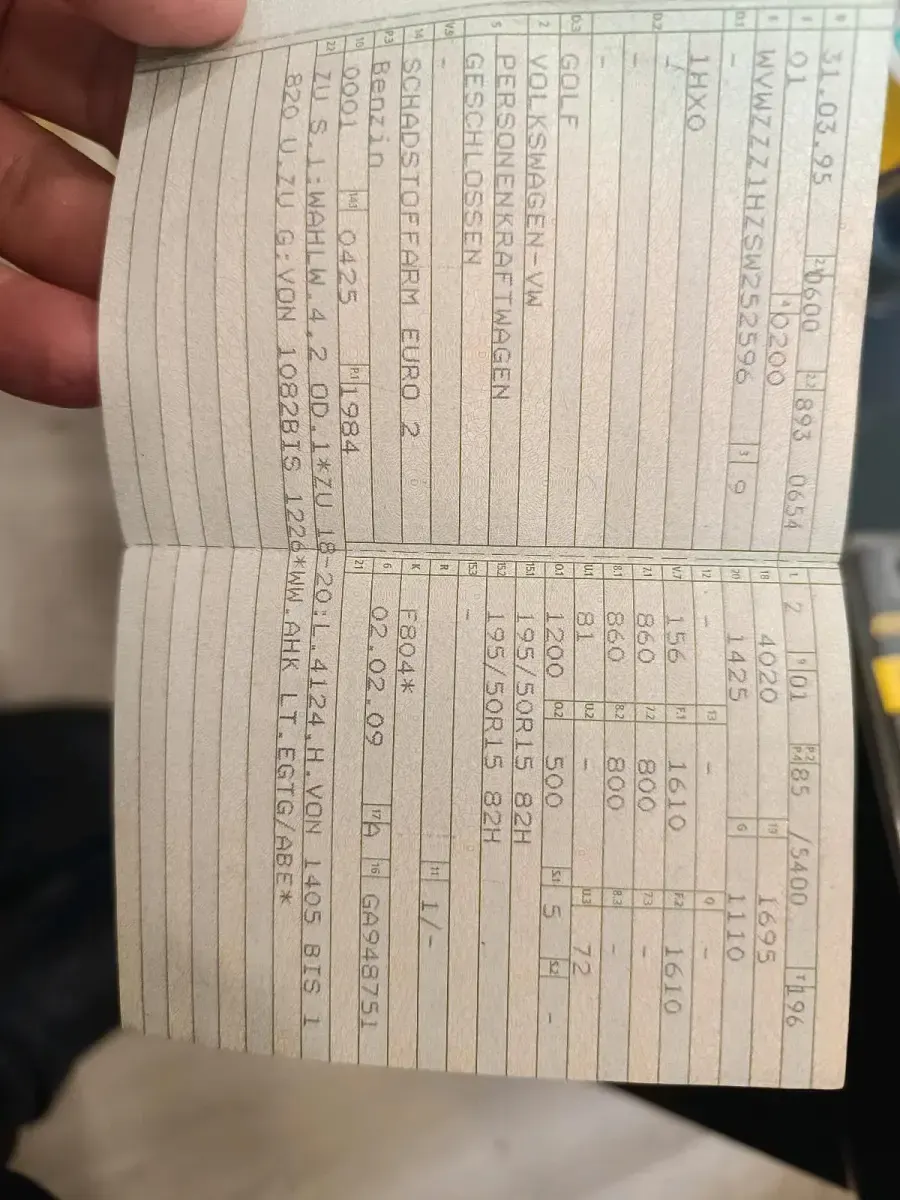 B 31.03.95 2.1 0600 2.2 893 0654
J 01 4 0200
E WVWZZZ1HZSW252596 3 9
D.1 -
D.2 1HX0
-
-
D.3 GOLF
2 VOLKSWAGEN-VW
5 PERSONENKRAFTWAGEN
GESCHLOSSEN
V.9 -
14 SCHADSTOFFARM EURO 2
P.3 Benzin
10 0001 14.1 0425 P.1 1984
L 2 9 01 P.2 P.4 85 /5400 T 196
18 4020 19 1695
20 1425 G 1110
12 - 13 - Q -
V.7 156 F.1 1610 F.2 1610
7.1 860 7.2 800 7.3 -
8.1 860 8.2 800 8.3 -
U.1 81 U.2 - U.3 72
O.1 1200 O.2 500 S.1 5 S.2 -
15.1 195/50R15 82H
15.2 195/50R15 82H
15.3 -
R 11 1/-
K F804*
6 02.02.09 17 A 16 GA948751
21
22 ZU S.1:WAHLW.4,2 OD.1*ZU 18-20:L.4124,H.VON 1405 BIS 1
820 U.ZU G:VON 1082BIS 1226*WW.AHK LT.EGTG/ABE*